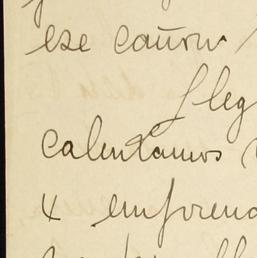 ese cañon
Lleg
calentamos
y emprend